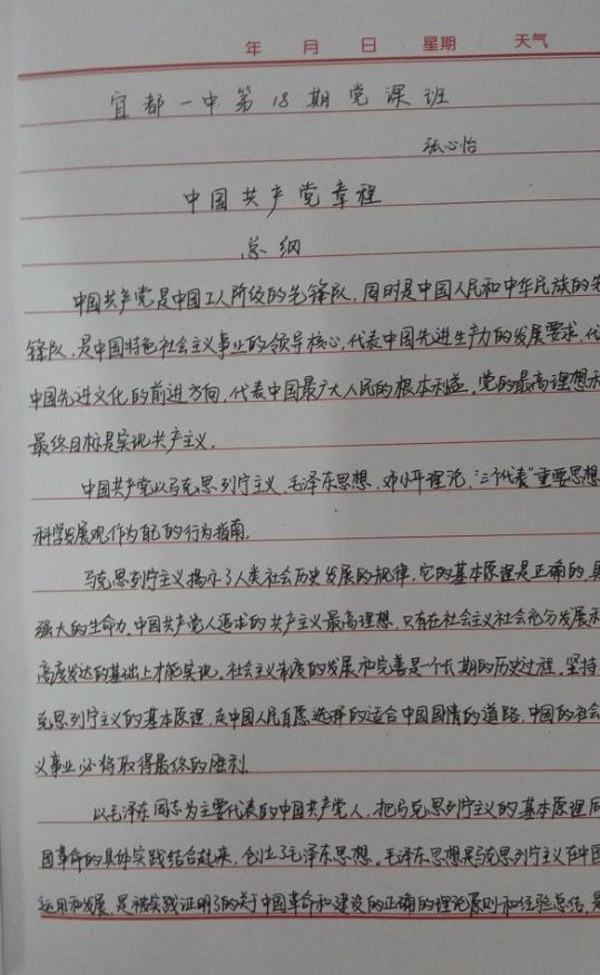 年 月 日 星期 天气
宜都一中第18期党课班
张心怡
中国共产党章程
总纲
中国共产党是中国工人阶级的先锋队，同时是中国人民和中华民族的先
锋队，是中国特色社会主义事业的领导核心，代表中国先进生产力的发展要求，代
中国先进文化的前进方向，代表中国最广大人民的根本利益。党的最高理想和
最终目标是实现共产主义。
中国共产党以马克思列宁主义、毛泽东思想、邓小平理论、“三个代表”重要思想
科学发展观作为自己的行为指南。
马克思列宁主义揭示了人类社会历史发展的规律，它的基本原理是正确的，具
强大的生命力。中国共产党人追求的共产主义最高理想，只有在社会主义社会充分发展和
高度发达的基础上才能实现。社会主义制度的发展和完善是一个长期的历史过程。坚持
克思列宁主义的基本原理，走中国人民自愿选择的适合中国国情的道路，中国的社会
义事业必将取得最终的胜利。
以毛泽东同志为主要代表的中国共产党人，把马克思列宁主义的基本原理同
国革命的具体实践结合起来，创立了毛泽东思想。毛泽东思想是马克思列宁主义在中国
运用和发展，是被实践证明了的关于中国革命和建设的正确的理论原则和经验总结，是